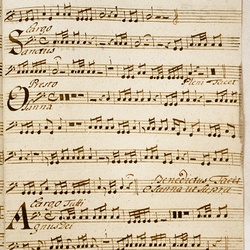 Largo
Sanctus
Presto Pleni Tacet
Osanna
Benedictus Tacet
Osanna ut supra
Largo Tutti
Agnus Dei